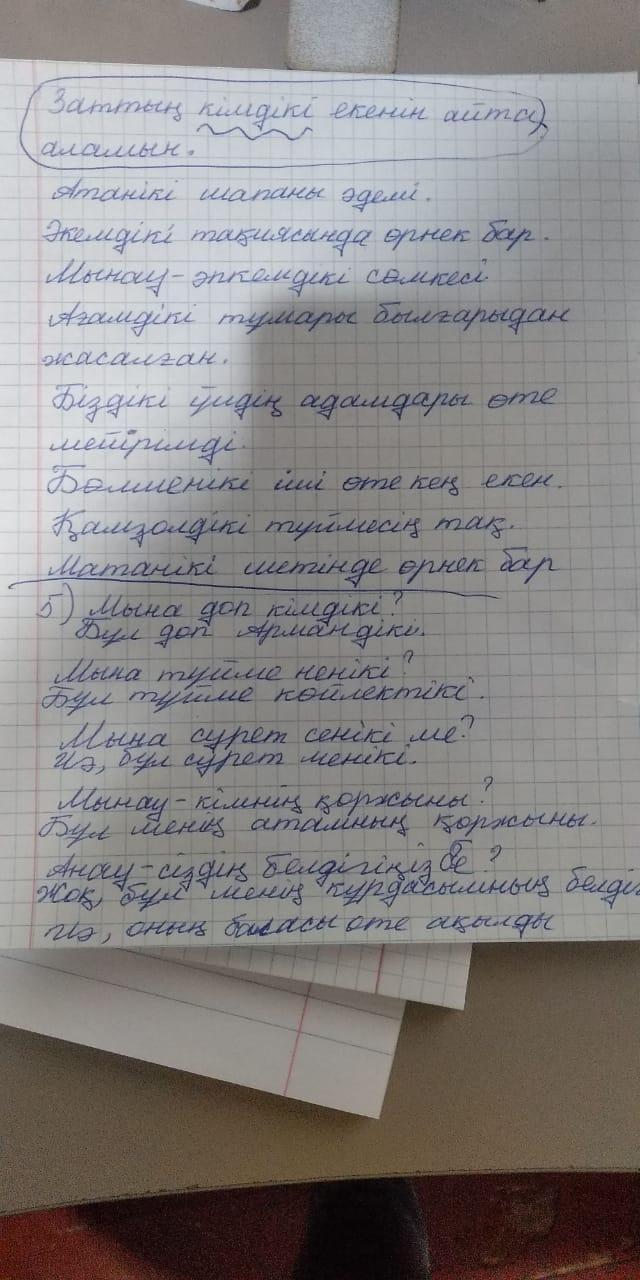 Заттың кімдікі екенін айта
аламын.
Атанікі шапаны әдемі.
Әкемдікі тақиясында өрнек бар.
Мынау-әпкемдікі сөмкесі
Ағамдікі тұмары былғарыдан
жасалған.
Біздікі үйдің адамдары өте
мейірімді.
Бөлменікі іші өте кең екен.
Қамзолдікі түймесің тақ.
Матанікі шетінде өрнек бар
5) Мына доп кімдікі?
Бұл доп Армандікі.
Мына түйме ненікі?
Бұл түйме көйлектікі.
Мына сурет сенікі ме?
Иә, бұл сурет менікі.
Мынау-кімнің қоржыны?
Бұл менің атамның қоржыны.
Анау-сіздің белдігіңіз бе?
Жоқ, бұл менің құрдасымның белдіг
Иә, оның баласы өте ақылды